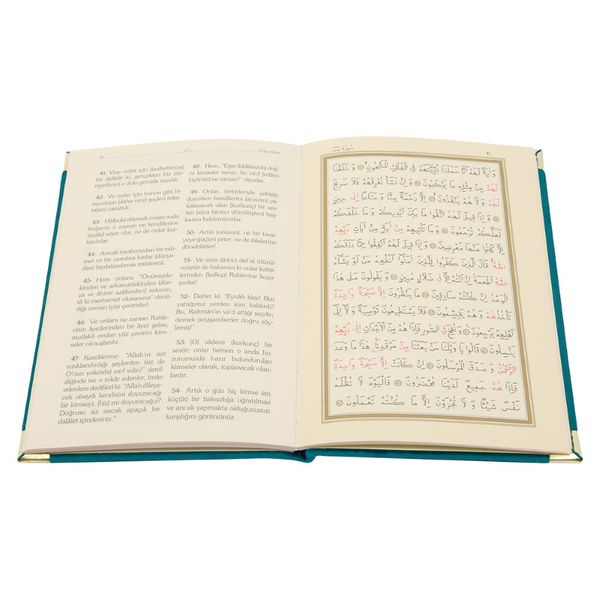 41- Yine onlar için (kudretimize)
bir delildir ki, gerçekten biz zür-
riyetlerini o dolu gemide taşıdık.
42- Ve onlar için bunun gibi bi-
necekleri (daha nice şeyleri (vâsı-
taları) yarattık.
43- Hâlbuki dilersek onları suda
boğarız; o zaman ne kendilerine
imdâd eden olur, ne de onlar kur-
tarılırlar.
44- Ancak tarafımızdan bir rah-
met ve bir zamana kadar (dünya-
dan) faydalandırma müstesnâ.
45- Hem onlara: "Önünüzde-
kinden ve arkanızdakinden (dün-
ya ve âhiret azâbından) sakının;
tâ ki merhamet olunasınız" denil-
diği zaman (yüz çevirirler).
46- Ve onlara ne zaman Rable-
rinin âyetlerinden bir âyet gelse,
mutlakâ ondan yüz çevirici kim-
seler olmuşlardır.
47- Kendilerine: "Allah'ın sizi
rızıklandırdığı şeylerden (siz de
O'nun yolunda) sarf edin!" denil-
diğinde ise o inkâr edenler, îmân
edenlere dediler ki: "Allah dileye-
cek olsaydı kendisini doyuracağı
bir kimseyi, (biz) mi doyuracağız?
Doğrusu siz ancak apaçık bir
dalâlet içindesiniz."
48- Hem, "Eğer (iddiânızda) doğ-
ru kimseler iseniz, bu vaad (edilen
kıyâmet) ne zaman?" diyorlar.
49- Onlar, birbirleriyle çekişip
dururlarken kendilerini (ansızın) ya-
kalayacak olan (korkunç) bir ses-
ten (sûra birinci üfürülüşten) baş-
kasını beklemiyorlar.
50- Artık (onlar) ne bir tavsi-
yeye güçleri yeter, ne de âilelerine
dönebilirler!
51- Ve sûra (ikinci def'a) üfürül-
müştür de bakarsın ki onlar kabir-
lerinden (kalkıp) Rablerine koşu-
yorlar.
52- Derler ki: "Eyvâh bize! Bizi
yattığımız yerden kim kaldırdı?
Bu, Rahmân'ın va'd ettiği şeydir;
demek peygamberler doğru söyle-
miş!"
53- (O) sâdece (korkunç) bir
sestir; onlar hemen o anda hu-
zûrumuzda hazır bulundurulan
kimseler olarak, toplanacak olan-
lardır.
54- Artık o gün hiç kimse (en
küçük) bir haksızlığa uğratılmaz
ve ancak yapmakta olduğunuzun
karşılığını görürsünüz.
لَهُمْ أَنَّا حَمَلْنَا ذُرِّيَّتَهُمْ فِي الْفُلْكِ الْمَشْحُونِ وَخَلَقْنَا
لَهُمْ مِنْ مِثْلِهِ مَا يَرْكَبُونَ وَإِنْ نَشَأْ نُغْرِقْهُمْ فَلَا صَرِيخَ
لَهُمْ وَلَا هُمْ يُنْقَذُونَ إِلَّا رَحْمَةً مِنَّا وَمَتَاعًا إِلَى
حِينٍ وَإِذَا قِيلَ لَهُمُ اتَّقُوا مَا بَيْنَ أَيْدِيكُمْ وَمَا خَلْفَكُمْ
لَعَلَّكُمْ تُرْحَمُونَ وَمَا تَأْتِيهِمْ مِنْ آيَةٍ مِنْ آيَاتِ رَبِّهِمْ
إِلَّا كَانُوا عَنْهَا مُعْرِضِينَ وَإِذَا قِيلَ لَهُمْ أَنْفِقُوا مِمَّا رَزَقَكُمُ
اللّٰهُ قَالَ الَّذِينَ كَفَرُوا لِلَّذِينَ آمَنُوا أَنُطْعِمُ مَنْ لَوْ يَشَاءُ
اللّٰهُ أَطْعَمَهُ إِنْ أَنْتُمْ إِلَّا فِي ضَلَالٍ مُبِينٍ وَيَقُولُونَ مَتَى هٰذَا
الْوَعْدُ إِنْ كُنْتُمْ صَادِقِينَ مَا يَنْظُرُونَ إِلَّا صَيْحَةً وَاحِدَةً
تَأْخُذُهُمْ وَهُمْ يَخِصِّمُونَ فَلَا يَسْتَطِيعُونَ تَوْصِيَةً وَلَا إِلَى
أَهْلِهِمْ يَرْجِعُونَ وَنُفِخَ فِي الصُّورِ فَإِذَا هُمْ مِنَ الْأَجْدَاثِ إِلَى رَبِّهِمْ
يَنْسِلُونَ قَالُوا يَا وَيْلَنَا مَنْ بَعَثَنَا مِنْ مَرْقَدِنَا هٰذَا مَا وَعَدَ
الرَّحْمٰنُ وَصَدَقَ الْمُرْسَلُونَ إِنْ كَانَتْ إِلَّا صَيْحَةً وَاحِدَةً
فَإِذَا هُمْ جَمِيعٌ لَدَيْنَا مُحْضَرُونَ فَالْيَوْمَ لَا تُظْلَمُ
نَفْسٌ شَيْئًا وَلَا تُجْزَوْنَ إِلَّا مَا كُنْتُمْ تَعْمَلُونَ